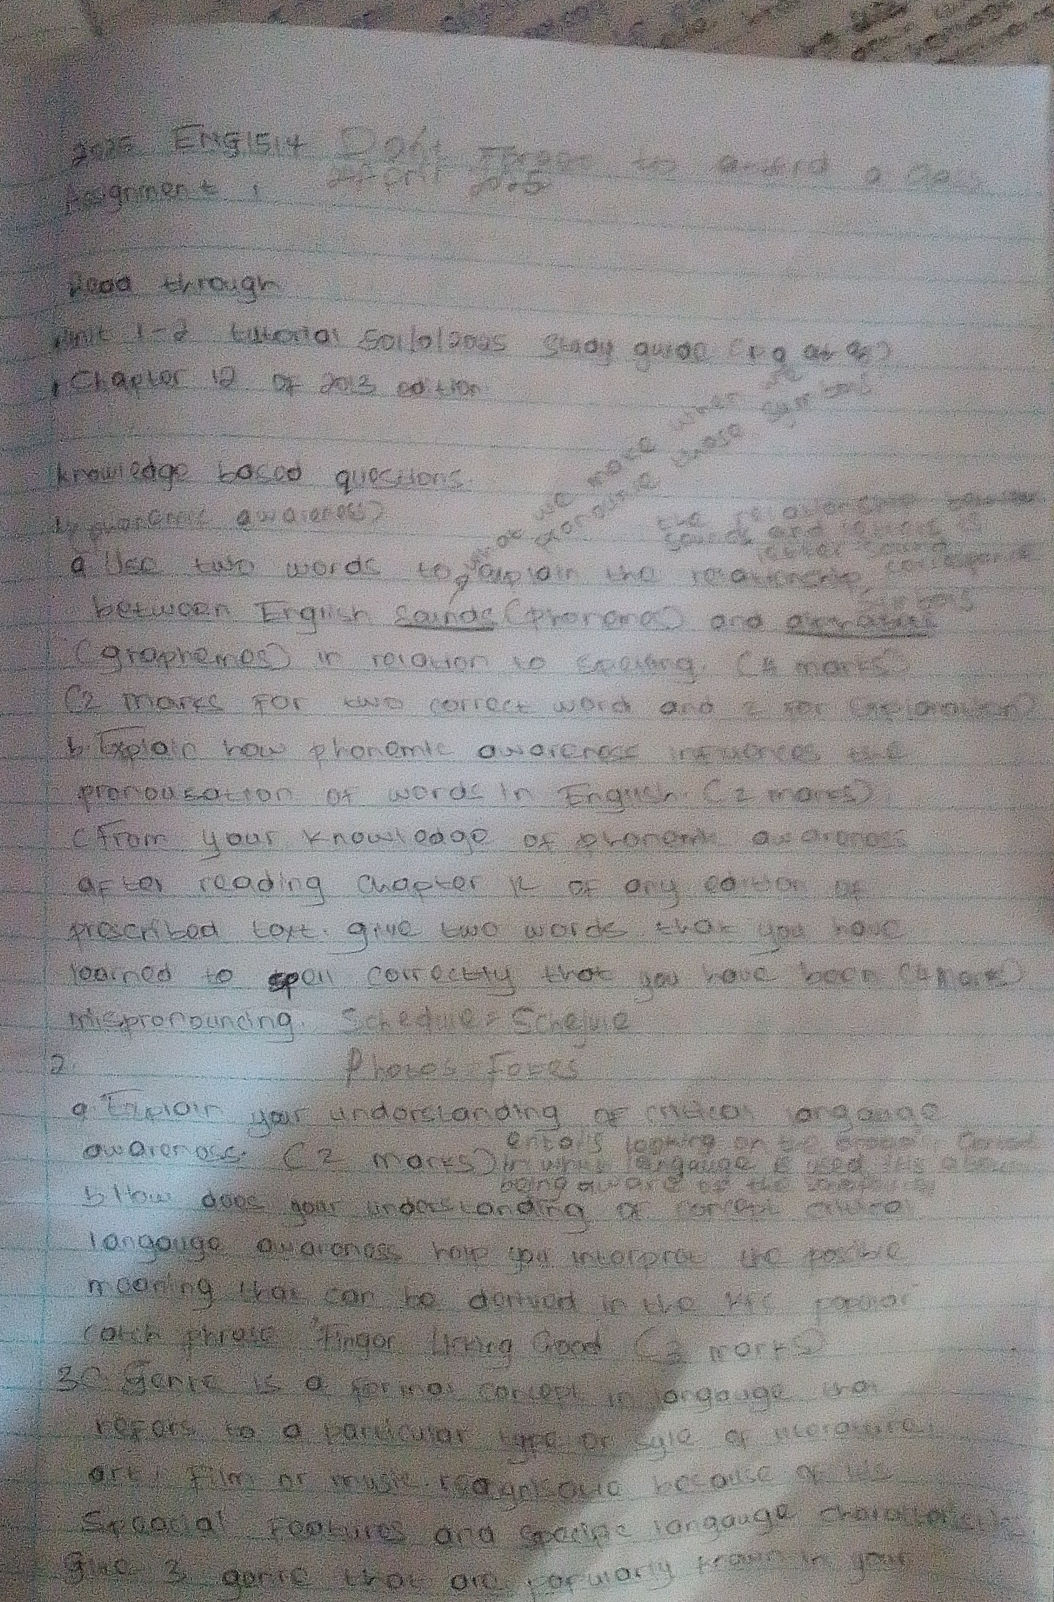 2025 ENG1514 Don't Forget to add a
Assignment 1 2025
Read through
Unit 1-2 tutorial 501/0/2025 study guide (pg
Chapter 12 of 2013 edition
knowledge based questions
phonemic awareness)
we make when
pronounce those symbols
the relationship
sounds and
letter sound
a Use two words to explain the relationship
between English Sounds (Phonemes) and
(graphemes) in relation to spelling. (4 marks)
(2 marks for two correct word and 2 for explanation)
b. Explain how phonemic awareness influences the
pronousation of words in English. (2 marks)
(From your knowledge of phonemic awareness
after reading Chapter 12 of any edition of
prescribed text. give two words that you have
learned to spell correctly that you have been (4 marks)
mispronouncing. Schedule = Schejule
2. Photos = Fotos
a. Explain your understanding of critical langauge
entails looking on the
awareness. (2 marks) in which langauge is used its about
being aware of the
b How does your understanding of concept critical
langauge awareness help you interpret the posible
meaning that can be derived in the KFC popular
catch phrase "Finger licking Good (3 marks)
3. Genre is a formal concept in langauge that
refers to a particular type or syle of literature,
art, film or music. because of its
Spaacial Features and spacific langauge
Give 3 genre that are popularly known in your